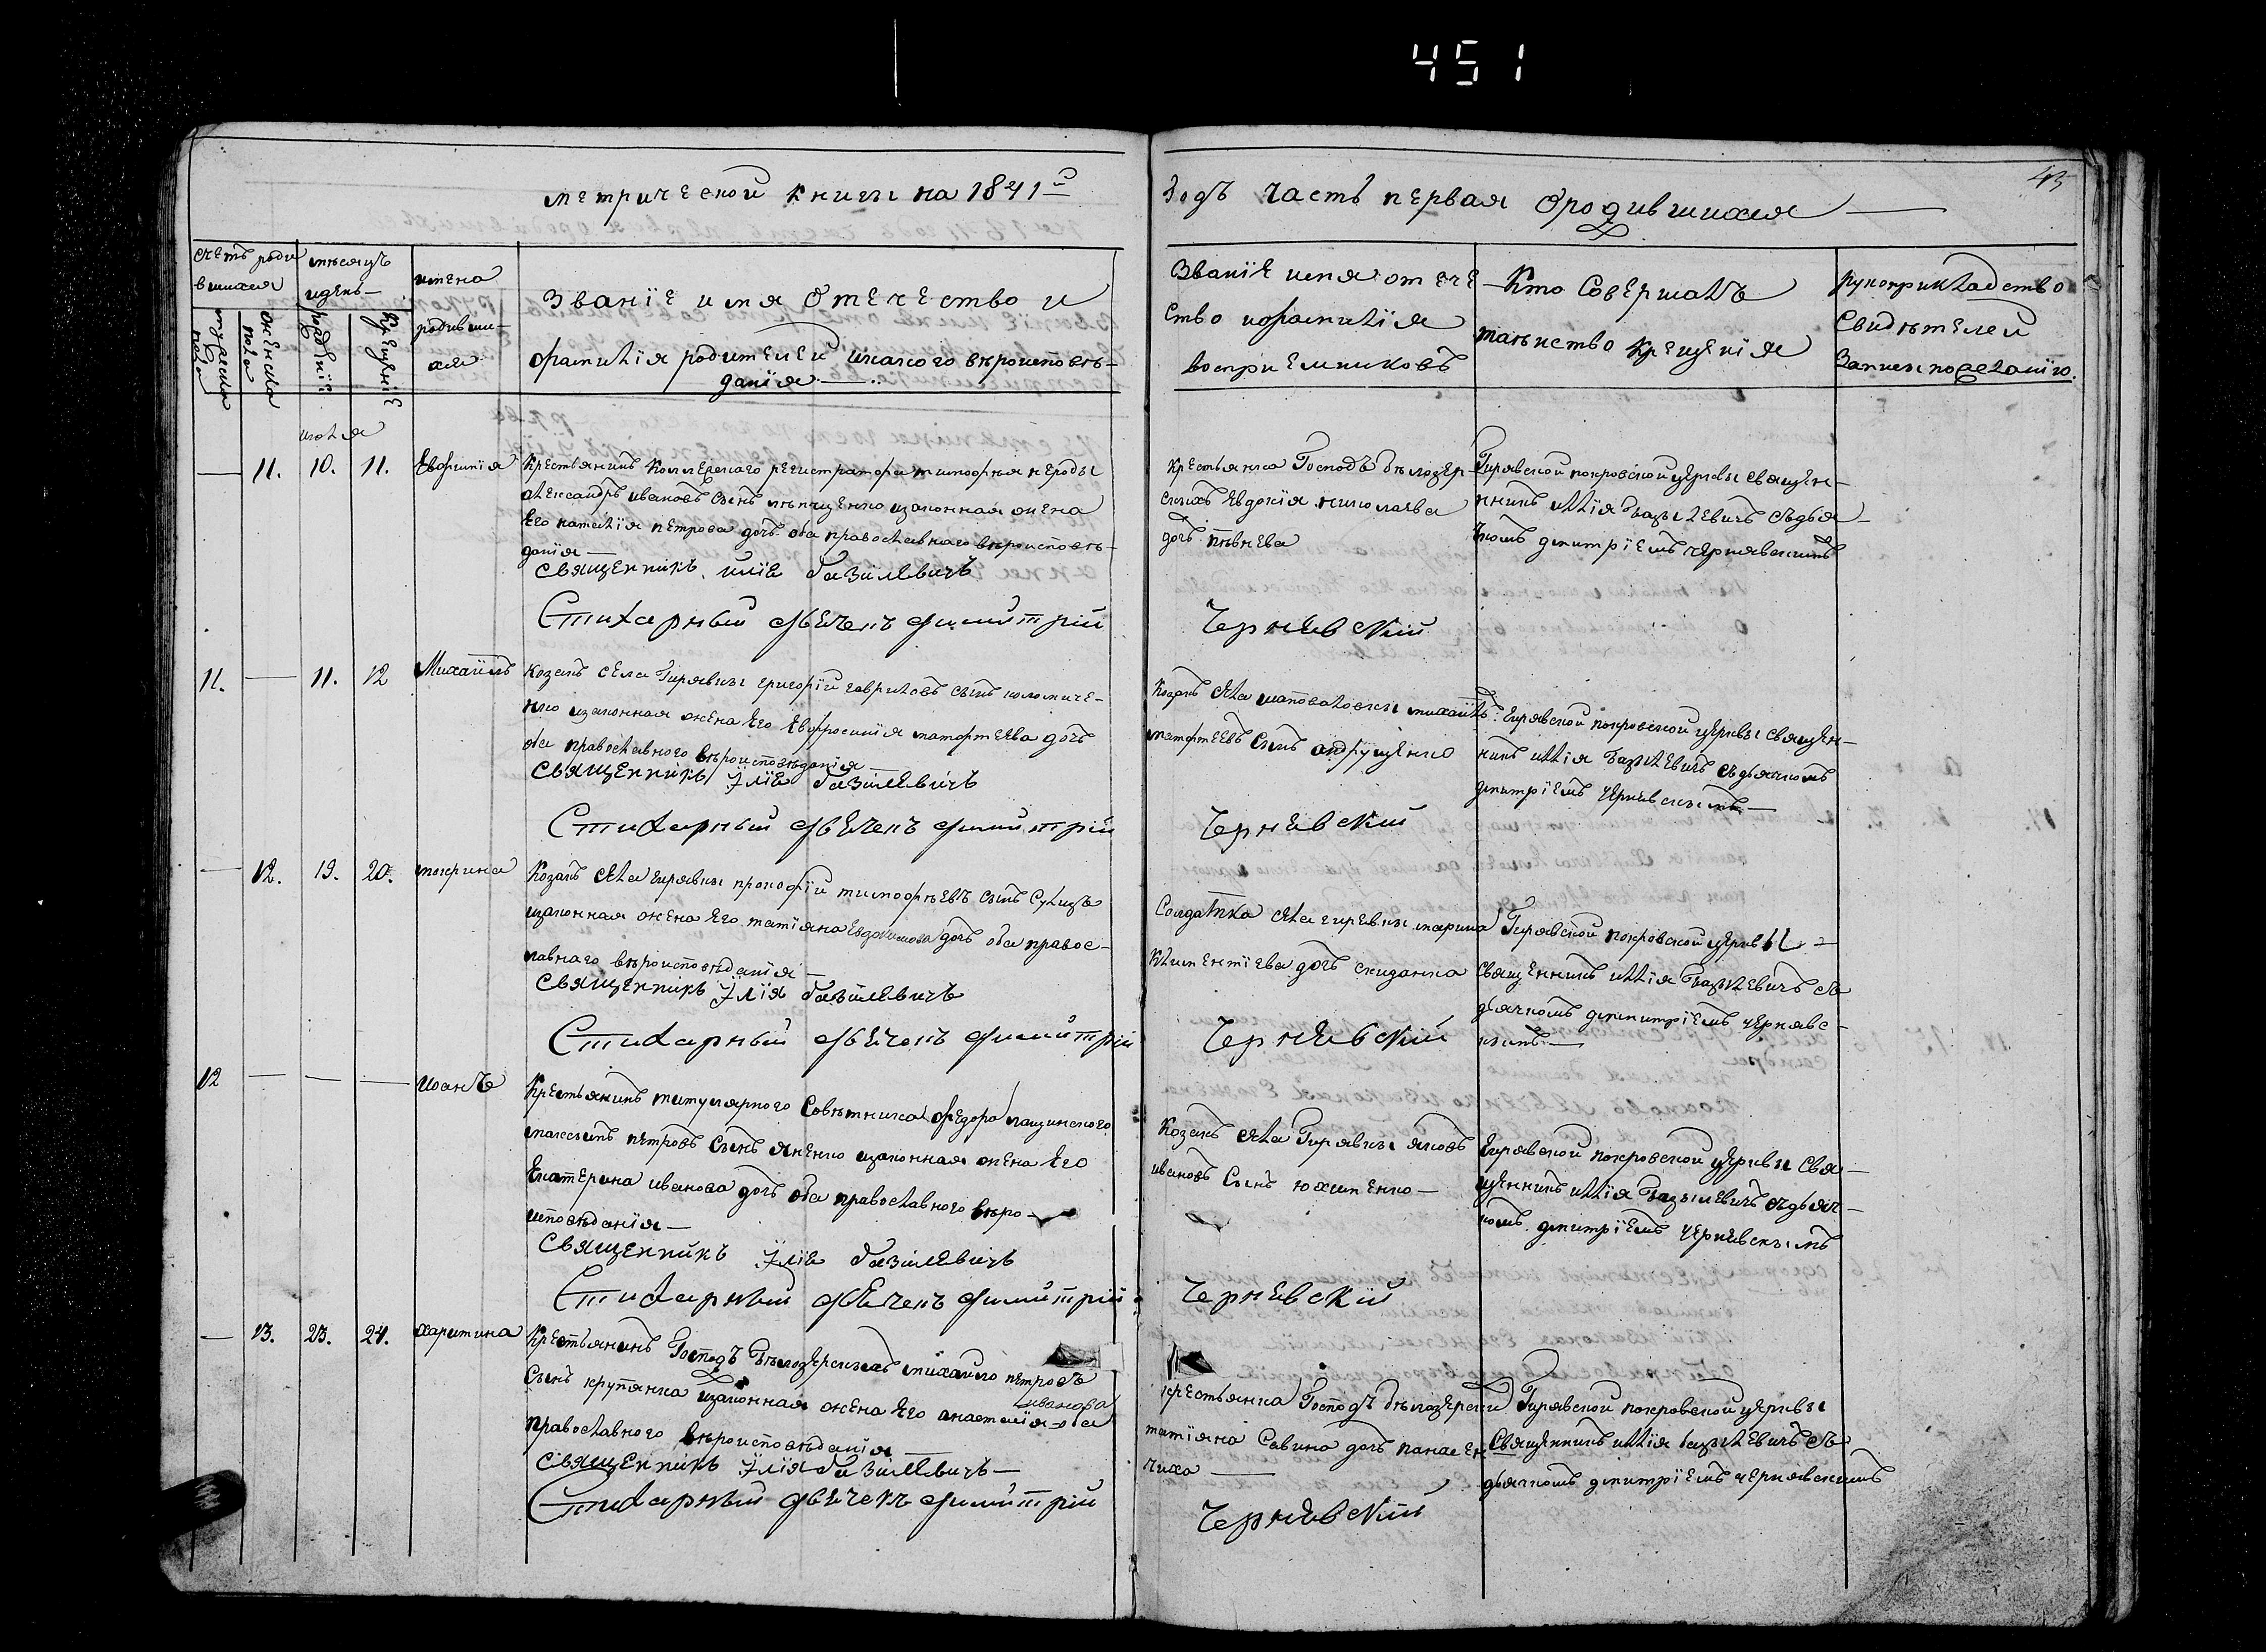 451
45
метрической книги на 1841й
Годъ часть первая о родившихся
счетъ роди
вшихся
мужеска
пола
женска
пола
мѣсяцъ
и день
рождение
Крещение
имена
родивши-
хся
Званїе имя Отечество и
фамилїя родителей и какого вѣроисповѣ-
данїя
Званїе имя отече
ство и фамилїя
воспрїемниковъ
Кто Совершалъ
таинство Крещенїя
рукоприкладство
Свидѣтелей
Записи по желанїю.
июля
11. 10. 11. Евфимия
Крестьянинъ Коллежскаго регистратора Тимофея
александръ ивановъ сынъ изаконная жена
Его наталїя петрова дочь оба православнаго вѣроисповѣ-
данїя
Священникъ илїя базилевичъ
Стихарный дьячекъ димитрїй
Чернявский
Крестьянка Господъ бѣлозер-
скихъ Евдокїя николаева
дочь пѣвнева
Гирявской покровской церквы священ-
никъ илїя базылевичъ съ дья-
чкомъ дмитрїемъ чернявскимъ
11. 11. 12 Михаилъ
Козакъ села Гирявки григорїй гавриловъ сынъ коломиче-
нко изаконная жена Его Евфросинїя матфеева дочь
оба православного вѣроисповѣданїя
Священникъ Илїя базилевичъ
Стихарный дьячекъ димитрїй
Чернявский
Козакъ села шаповаловки михаилъ
матфеевъ сынъ андрущенко
Гирявской покровской церквы священ-
никъ илїя базылевичъ съ дьячкомъ
дмитрїемъ чернявскимъ
12. 19. 20. мокрина
Козакъ села гирявки прокофїй тимофѣевъ сынъ
изаконная жена Его татїяна Евдокимова дочь оба правос-
лавнаго вѣроисповѣданїя
Священникъ Илїя базилевичъ
Стихарный дьячекъ димитрїй
Чернявский
Солдатка села гиревки марина
Климентїева дочь скиданка
Гирявской покровской церквы
Священникъ илїя базылевичъ съ
дьячкомъ дмитрїемъ чернявс-
кимъ
12 иоанъ
Крестьянинъ титулярного Совѣтника Федора лащинского
максимъ петровъ Сынъ яненко изаконная жена Его
Екатерина иванова дочь оба православного вѣро-
исповѣданїя
Священникъ Илїя базилевичъ
Стихарный дьячекъ димитрїй
Чернявский
Козакъ села Гирявки яковъ
ивановъ Сынъ юхименко
Гирявской покровской церквы свя-
щенникъ илїя базылевичъ съ дьяч-
комъ дмитрїемъ чернявскимъ
13. 23. 24. харитина
Крестьянинъ Господъ Бѣлозерскихъ михайло петровъ
Сынъ крупянка изаконная жена Его анастасїя иванова оба
православного вѣроисповѣданїя
Священникъ Илїя базилевичъ
Стихарный дьячекъ димитрїй
Чернявский
крестьянка Господъ бѣлозерски
татїяна Савина дочь панасен
чиха
Гирявской покровской церквы
Священникъ илїя базылевичъ съ
дьячкомъ дмитрїемъ чернявскимъ